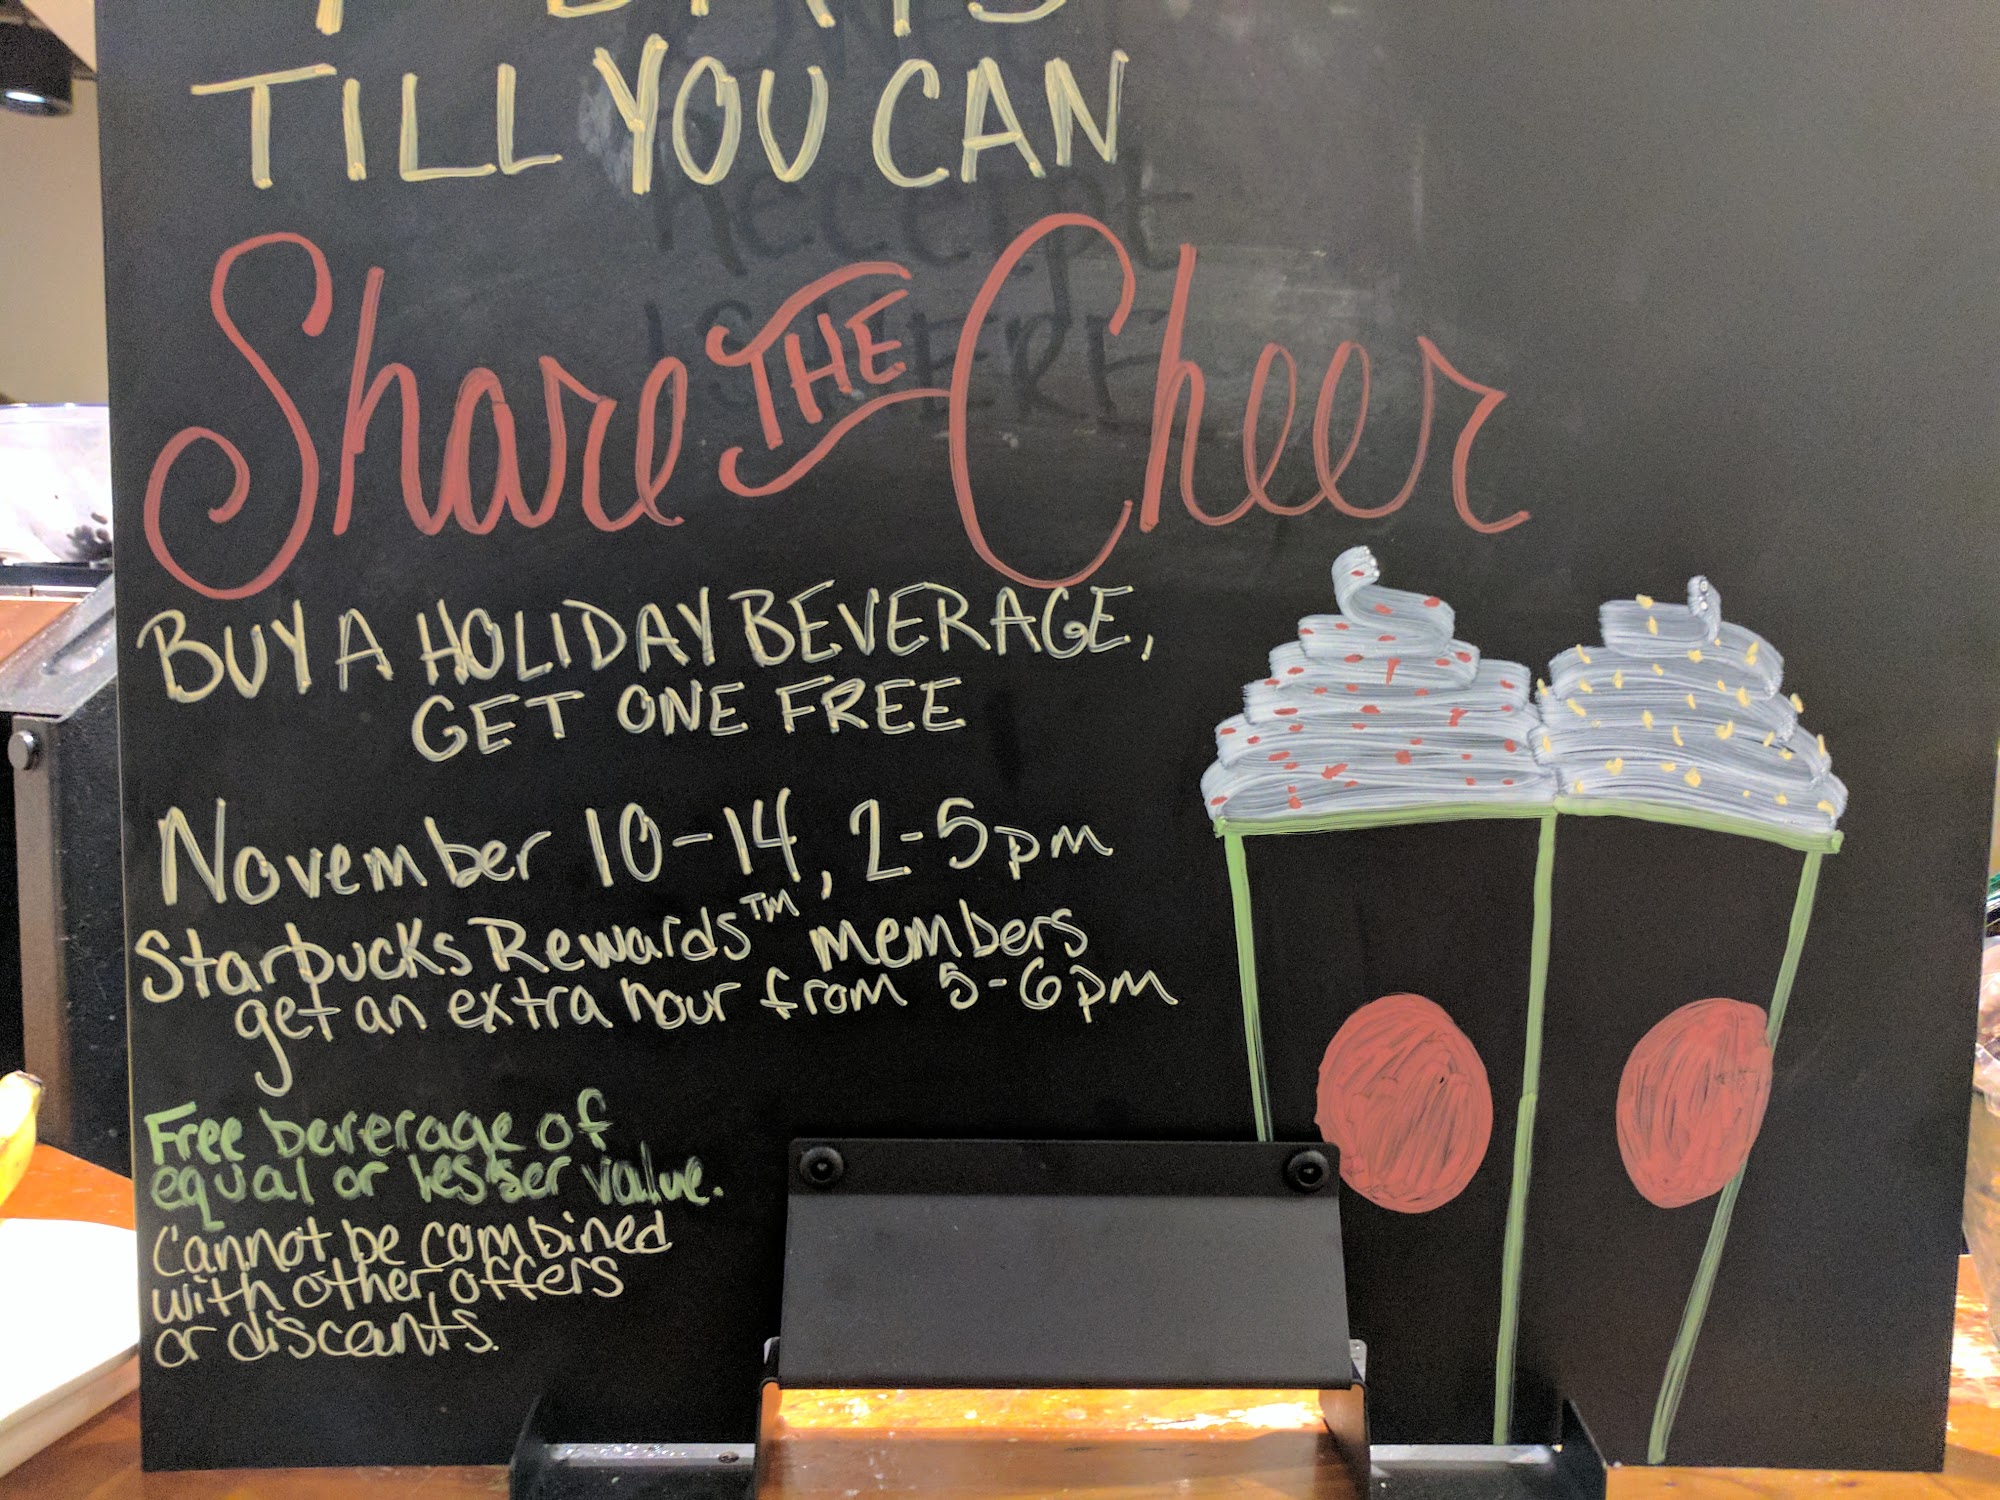 DAYS
TILL YOU CAN
Share THE Cheer
BUY A HOLIDAY BEVERAGE,
GET ONE FREE
November 10-14, 2-5pm
Starbucks Rewards™ members
get an extra hour from 5-6pm
Free beverage of
equal or lesser value.
Cannot be combined
with other offers
or discounts.
Receipt
IS HERE